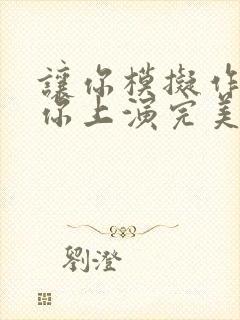 讓你模擬作
你上演完美
劉澄